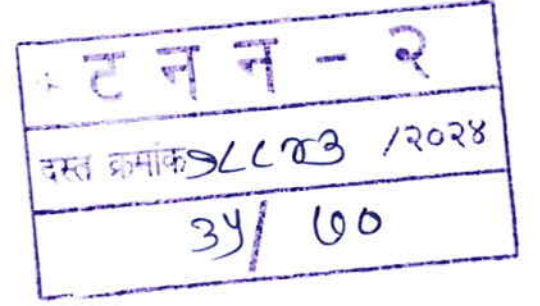 ट न न - २
दस्त क्रमांक १८८४३ /२०२४
३५/ ७०